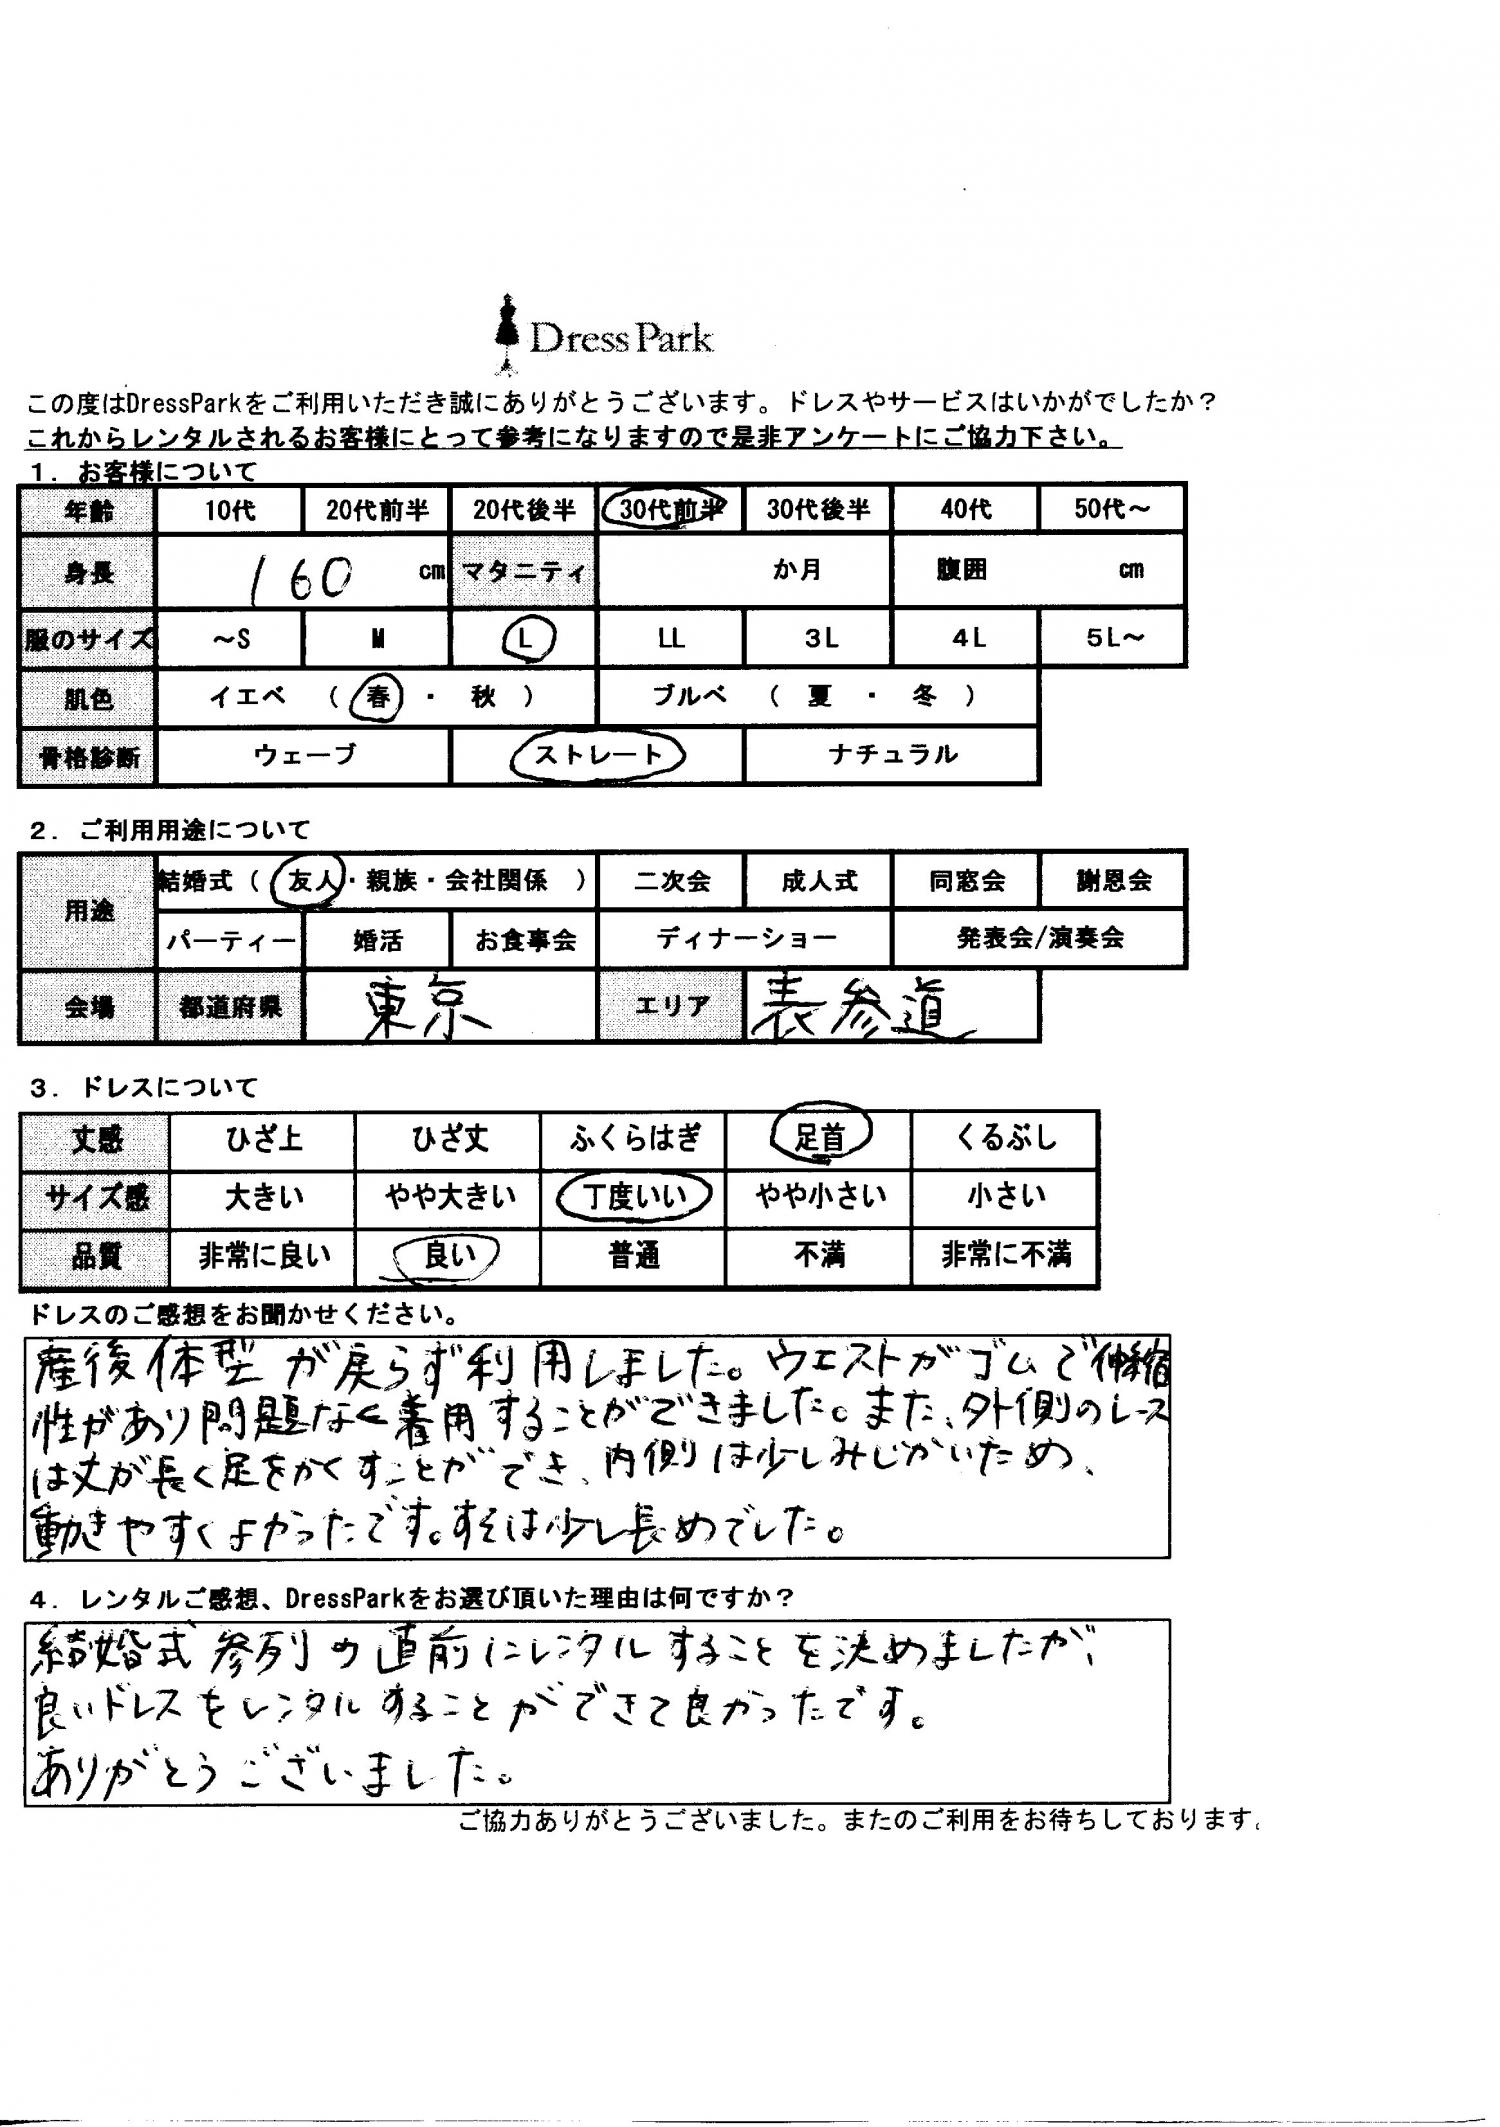 Dress Park
この度はDressParkをご利用いただき誠にありがとうございます。ドレスやサービスはいかがでしたか？
これからレンタルされるお客様にとって参考になりますので是非アンケートにご協力下さい。
1. お客様について
年齢 10代 20代前半 20代後半 30代前半 30代後半 40代 50代～
身長 160 cm マタニティ か月 腹囲 cm
服のサイズ ～S M L LL 3L 4L 5L～
肌色 イエベ （ 春 ・ 秋 ） ブルベ （ 夏 ・ 冬 ）
骨格診断 ウェーブ ストレート ナチュラル
2. ご利用用途について
用途 結婚式（ 友人・親族・会社関係 ） 二次会 成人式 同窓会 謝恩会
パーティー 婚活 お食事会 ディナーショー 発表会/演奏会
会場 都道府県 東京 エリア 表参道
3. ドレスについて
丈感 ひざ上 ひざ丈 ふくらはぎ 足首 くるぶし
サイズ感 大きい やや大きい 丁度いい やや小さい 小さい
品質 非常に良い 良い 普通 不満 非常に不満
ドレスのご感想をお聞かせください。
産後体型が戻らず利用しました。ウエストがゴムで伸縮
性があり問題なく着用することができました。また、外側のレース
は丈が長く足をかくすことができ、内側は少しみじかいため、
動きやすくよかったです。すそは少し長めでした。
4. レンタルご感想、DressParkをお選び頂いた理由は何ですか？
結婚式参列の直前にレンタルすることを決めましたが、
良いドレスをレンタルすることができて良かったです。
ありがとうございました。
ご協力ありがとうございました。またのご利用をお待ちしております。